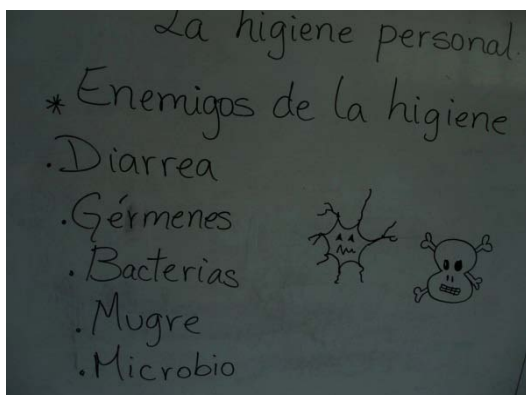 La higiene personal.
* Enemigos de la higiene
. Diarrea
. Gérmenes
. Bacterias
. Mugre
. Microbio